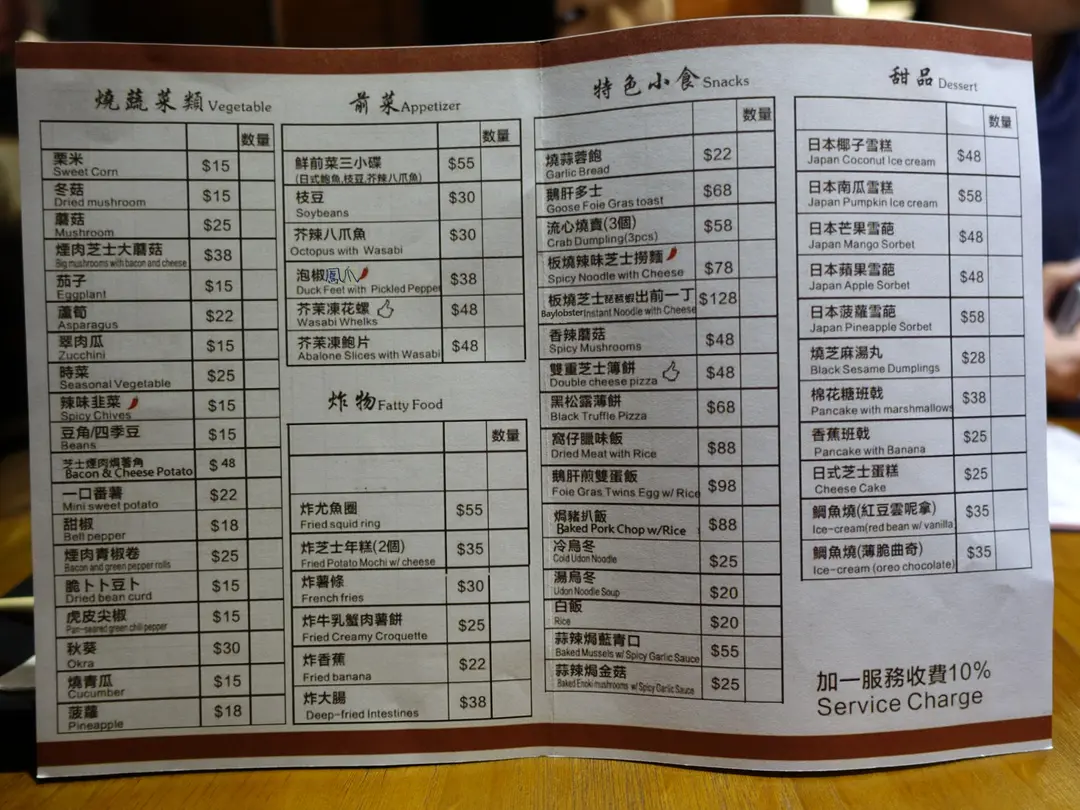 燒蔬菜類 Vegetable
数量
粟米 $15
Sweet Corn
冬菇 $15
Dried mushroom
蘑菇 $25
Mushroom
煙肉芝士大蘑菇 $38
Big mushrooms with bacon and cheese
茄子 $15
Eggplant
蘆筍 $22
Asparagus
翠肉瓜 $15
Zucchini
時菜 $25
Seasonal Vegetable
辣味韭菜 $15
Spicy Chives
豆角/四季豆 $15
Beans
芝士煙肉焗薯角 $48
Bacon & Cheese Potato
一口番薯 $22
Mini sweet potato
甜椒 $18
Bell pepper
煙肉青椒卷 $25
Bacon and green pepper rolls
脆卜卜豆卜 $15
Dried bean curd
虎皮尖椒 $15
Pan-seared green chili pepper
秋葵 $30
Okra
燒青瓜 $15
Cucumber
菠蘿 $18
Pineapple
前菜 Appetizer
数量
鮮前菜三小碟 $55
(日式鮑魚,枝豆,芥辣八爪魚)
枝豆 $30
Soybeans
芥辣八爪魚 $30
Octopus with Wasabi
泡椒鳳爪 $38
Duck Feet with Pickled Pepper
芥茉凍花螺 $48
Wasabi Whelks
芥茉凍鮑片 $48
Abalone Slices with Wasabi
炸物 Fatty Food
数量
炸尤魚圈 $55
Fried squid ring
炸芝士年糕(2個) $35
Fried Potato Mochi w/ cheese
炸薯條 $30
French fries
炸牛乳蟹肉薯餅 $25
Fried Creamy Croquette
炸香蕉 $22
Fried banana
炸大腸 $38
Deep-fried Intestines
特色小食 Snacks
数量
燒蒜蓉飽 $22
Garlic Bread
鵝肝多士 $68
Goose Foie Gras toast
流心燒賣(3個) $58
Crab Dumpling(3pcs)
板燒辣味芝士撈麵 $78
Spicy Noodle with Cheese
板燒芝士琵琶蝦出前一丁 $128
Baylobster Instant Noodle with Cheese
香辣蘑菇 $48
Spicy Mushrooms
雙重芝士薄餅 $48
Double cheese pizza
黑松露薄餅 $68
Black Truffle Pizza
窩仔臘味飯 $88
Dried Meat with Rice
鵝肝煎雙蛋飯 $98
Foie Gras Twins Egg w/ Rice
焗豬扒飯 $88
Baked Pork Chop w/Rice
冷烏冬 $25
Cold Udon Noodle
湯烏冬 $20
Udon Noodle Soup
白飯 $20
Rice
蒜辣焗藍青口 $55
Baked Mussels w/ Spicy Garlic Sauce
蒜辣焗金菇 $25
Baked Enoki mushrooms w/ Spicy Garlic Sauce
甜品 Dessert
数量
日本椰子雪糕 $48
Japan Coconut Ice cream
日本南瓜雪糕 $58
Japan Pumpkin Ice cream
日本芒果雪葩 $48
Japan Mango Sorbet
日本蘋果雪葩 $48
Japan Apple Sorbet
日本菠蘿雪葩 $58
Japan Pineapple Sorbet
燒芝麻湯丸 $28
Black Sesame Dumplings
棉花糖班戟 $38
Pancake with marshmallows
香蕉班戟 $25
Pancake with Banana
日式芝士蛋糕 $25
Cheese Cake
鯛魚燒(紅豆雲呢拿) $35
Ice-cream(red bean w/ vanilla)
鯛魚燒(薄脆曲奇) $35
Ice-cream (oreo chocolate)
加一服務收費10%
Service Charge